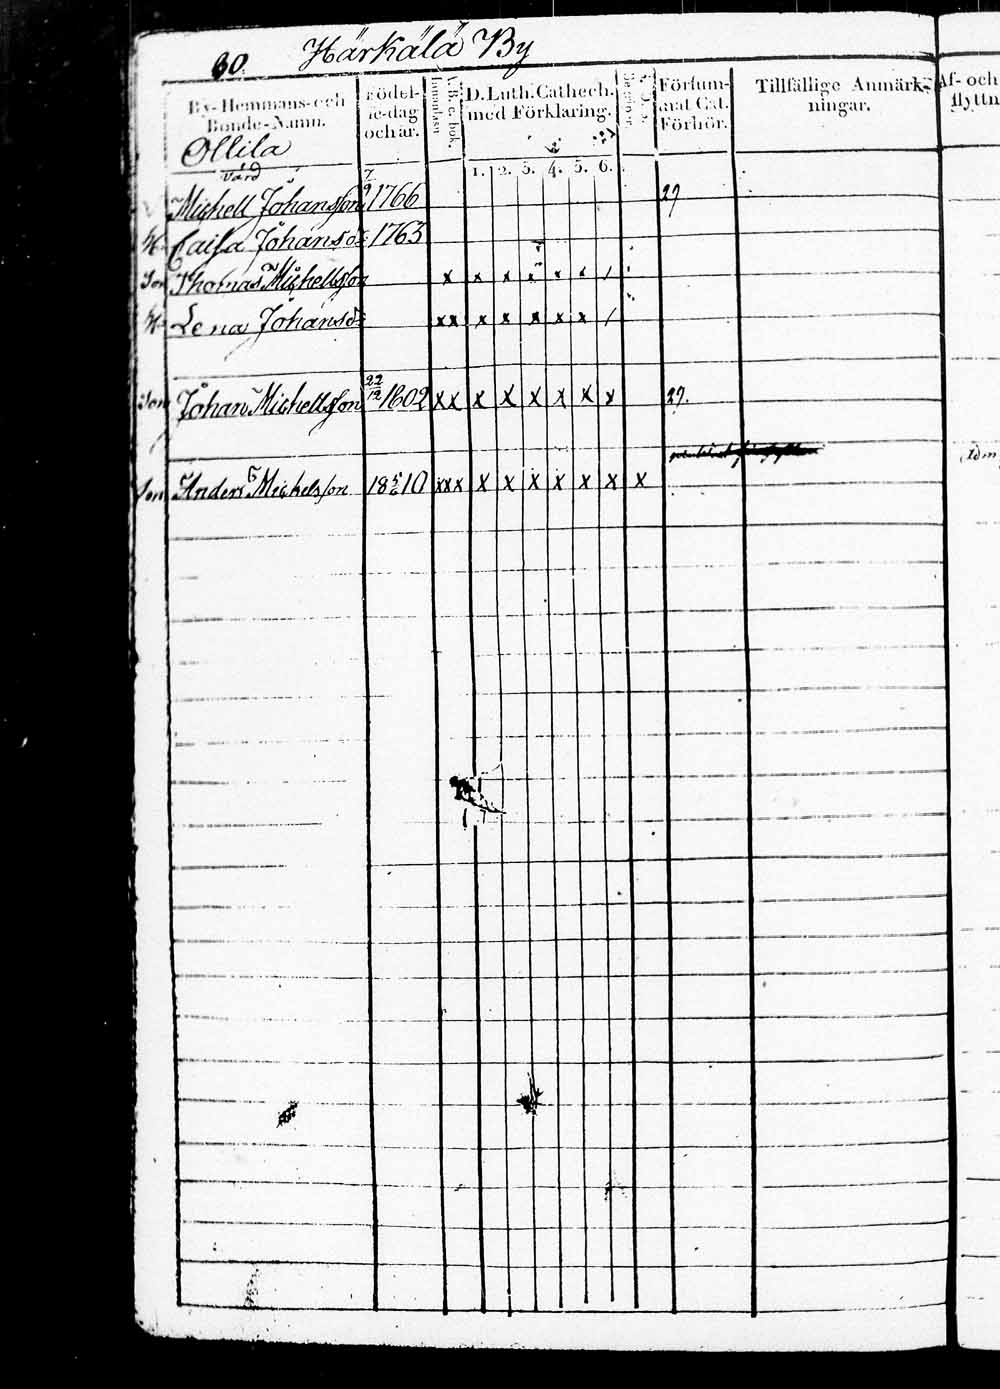 60. Härkälä By
By- Hemmans- och Bonde-Namn.
Födel-se-dag och år.
A. B. c. bok. Innanläsn.
D. Luth. Cathech. med Förklaring.
1. 2. 3. 4. 5. 6.
Försum-mat Cat. Förhör.
Tillfällige Anmärk-ningar.
Af- och
flyttn
Ollila
Värd
Michell Johansson 7/9 1766 27
H. Caisa Johansdr 1763
Son Thomas Michellsson x x x x x x
H. Lena Johansdr xx x x x x x /
Son Johan Michellsson 22/12 1802 xx x x x x x x 27.
Son Anders Michelsson 18 5/6 10 xxx x x x x x x x